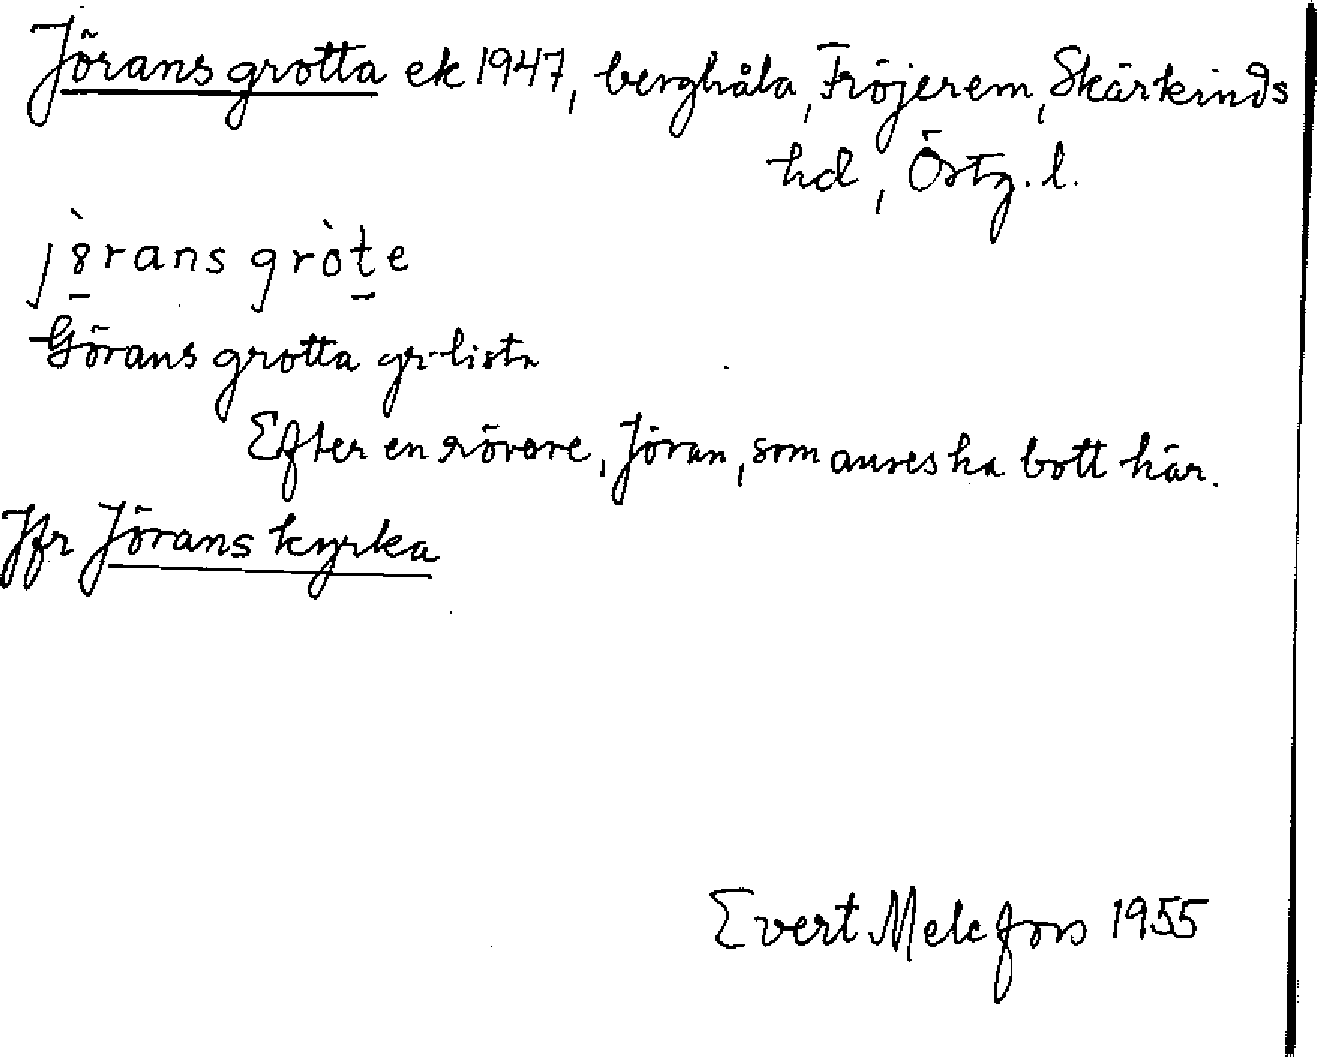 Jörans grotta ek 1947, berghåla, Fröjerem, Skärkinds
hd, Östg. l.
j8̀rans gròte
Görans grotta gr-lista
Efter en rövare, Jöran, som anses ha bott här.
Jfr Jörans kyrka
Evert Melefors 1955